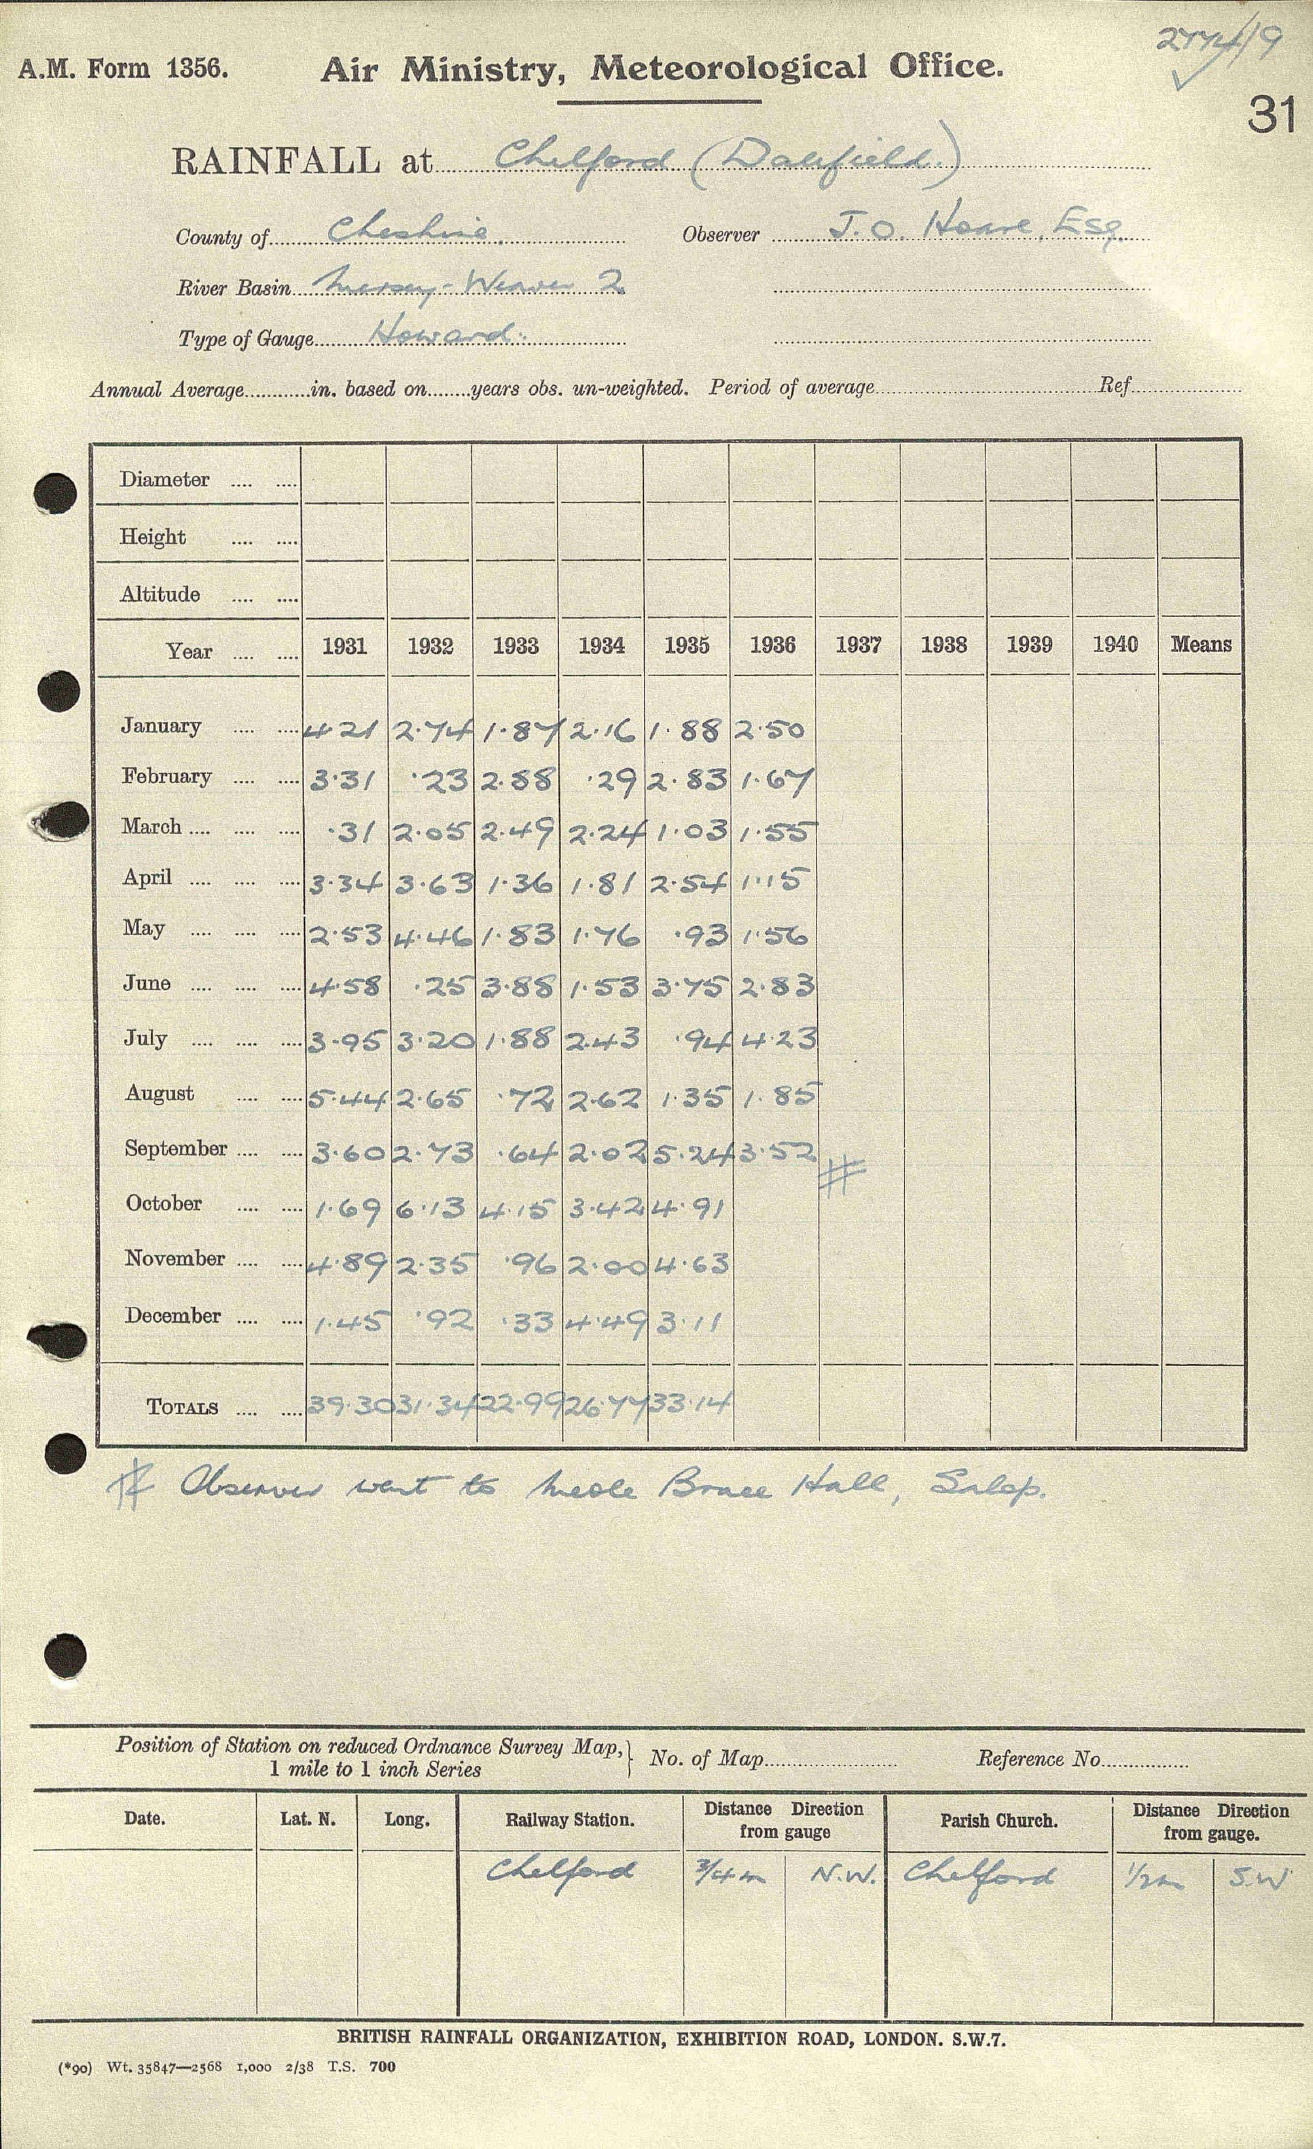 2774/19
A.M. Form 1356. Air Ministry, Meteorological Office.
31
RAINFALL at Chelford (Dalefield.)
County of Cheshire. Observer J. O. Hoare, Esq.
River Basin Mersey-Weaver 2
Type of Gauge Howard.
Annual Average............in. based on........years obs. un-weighted. Period of average............Ref............
Diameter .... ....
Height .... ....
Altitude .... ....
Year .... .... 1931 1932 1933 1934 1935 1936 1937 1938 1939 1940 Means
January .... .... 4.21 2.74 1.87 2.16 1.88 2.50
February .... .... 3.31 .23 2.88 .29 2.83 1.67
March .... .... .... .31 2.05 2.49 2.24 1.03 1.55
April .... .... .... 3.34 3.63 1.36 1.81 2.54 1.15
May .... .... .... 2.53 4.46 1.83 1.76 .93 1.56
June .... .... .... 4.58 .25 3.88 1.53 3.75 2.83
July .... .... .... 3.95 3.20 1.88 2.43 .94 4.23
August .... .... 5.44 2.65 .72 2.62 1.35 1.85
September .... .... 3.60 2.73 .64 2.02 5.24 3.52 #
October .... .... 1.69 6.13 4.15 3.42 4.91
November .... .... 4.89 2.35 .96 2.00 4.63
December .... .... 1.45 .92 .33 4.49 3.11
TOTALS .... .... 39.30 31.34 22.99 26.77 33.14
# Observer went to Meole Brace Hall, Salop.
Position of Station on reduced Ordnance Survey Map, } No. of Map............ Reference No............
1 mile to 1 inch Series
Date. Lat. N. Long. Railway Station. Distance Direction from gauge Parish Church. Distance Direction from gauge.
Chelford 3/4 m N.W. Chelford 1/2 m S.W
BRITISH RAINFALL ORGANIZATION, EXHIBITION ROAD, LONDON. S.W.7.
(*90) Wt. 35847—2568 1,000 2/38 T.S. 700